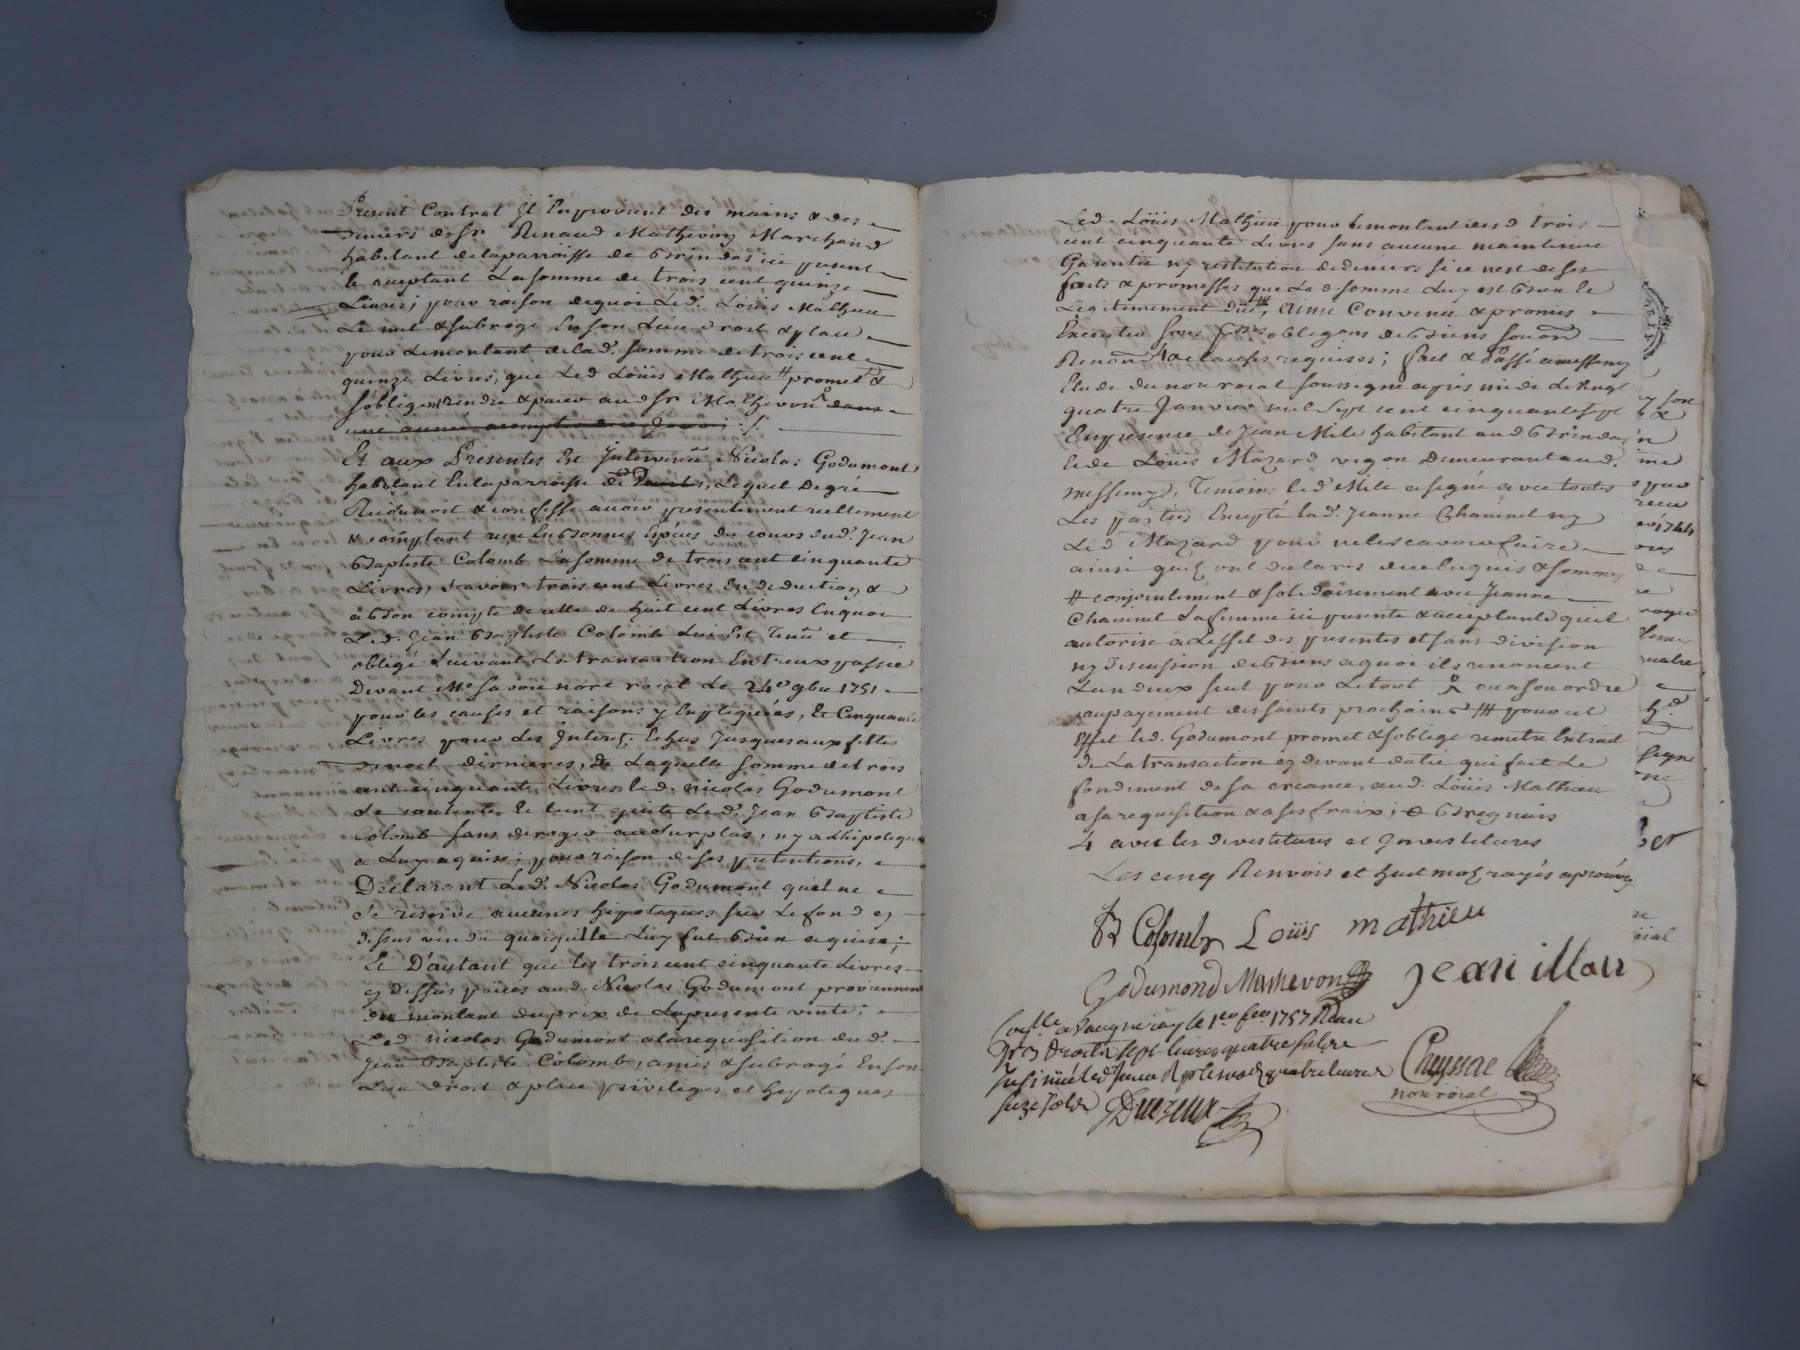 Present Contrat Il Enprovient des mains & des
deniers de Sr Renaud Mathevon Marchand
habitant delaparroisse de Brindas ici present
& aceptant La somme de trois cent quinze
Livres; pour raison dequoi Led. Loüis Mathieu
Le met & subroge En son Lieu droit & place
pour Lemontant delad. somme de trois cent
quinze Livres, que Led Loüis Mathieu # promet &
soblige rendre & paier aud Sr Mathevon dans
une année
Et aux Presentes Est Intervenu Nicolas Godumont
habitant En laparroisse de Lequel De gré
Reconnoit & confesse avoir presentement reellement
& comptant reçu En bonnes Espèces de cours dud. Jean
Baptiste Colomb La somme de trois cent cinquante
Livres, scavoir trois cent Livres En deduction &
a bon compte de celle de huit cent Livres Enquoi
Led. Jean Baptiste Colomb Lui Est Tenu et
obligé suivant La transaction Entreux passée
Devant Me Savoie nore roial Le 24e 9bre 1751
pour les causes et raisons y Expliquées, Et Cinquante
Livres pour Les Interets Echus Jusques aux fettes
de noel dernieres, De Laquelle somme de trois
cent cinquante Livres led. nicolas Godumont
se contente Et tient quitte Led. Jean Baptiste
Colomb sans deroger au Surplus, ny a Lhipoteque
a Luy aquise; pour raison de ses pretentions,
Declarant Led. Nicolas Godumont quil ne
se reserve aucunes hipoteques sur Le fond cy
dessus vendu quoiquelle Luy fut bien aquise;
Et D'autant que les trois cent cinquante Livres
cy dessus paiées aud. Nicolas Godumont proviennent
du montant du prix de Lapresente vente;
Led. nicolas Godumont a la requisition dud.
Jean Baptiste Colomb, a mis & subrogé En son
Lieu droit & place privileges et hipoteques
Led. Loüis Mathieu pour le montant des d trois
cent cinquante Livres sans aucune maintenue
Garentie ny restitution de deniers si ce nest de ses
faits & promesses que Lad somme Luy est bien &
Legitimement Düe, # Ainsi Convenu & promis
Executer sous obligons de biens soumon
Renon 4 & clauses requises; fait & Passé a messimy
Etude du nore roial soussigné après midi Le Vingt
quatre Janvier mil sept cent cinquante sept
En presence de Jean Mile habitant aud Brindas
& de Loüis Mazard vigon Demeurant aud.
messimy, Temoins led Mile a signé avec toutes
Les parties Excepté lad. Jeanne Chaminel ny
Led Mazard pour ne le scavoir faire
ainsi quil ont declarés de ce Enquis & sommés
# conjointement & solidairement avec Jeanne
Chaminel sa femme ici presente & aceptante quil
autorise a Leffet des presentes et sans division
ny discussion de biens a quoi ils renoncent
Lun deux seul pour Le tout ou a son ordre
au payement des saints prochains # pour cet
Effet led. Godumont promet & soblige remettre Extrait
de La transaction cy devant datée qui fait Le
fondement de sa creance, aud. Loüis Mathieu
a sa requisition & a ses fraix; & Bregnais
4 avec les devestitures et Investitures
Les cinq Renvois et huit mots rayés aprouvés
JB Colomb Loüis mathieu
Godumond Mathevon Jean Milan
Conlle a Vaugneray le 1er fevr 1757 Reçu
pr droits sept livres quatre sols
Insinué led Jour quatre livres
seize sols GDuezeux
Cheyssac
nore roial